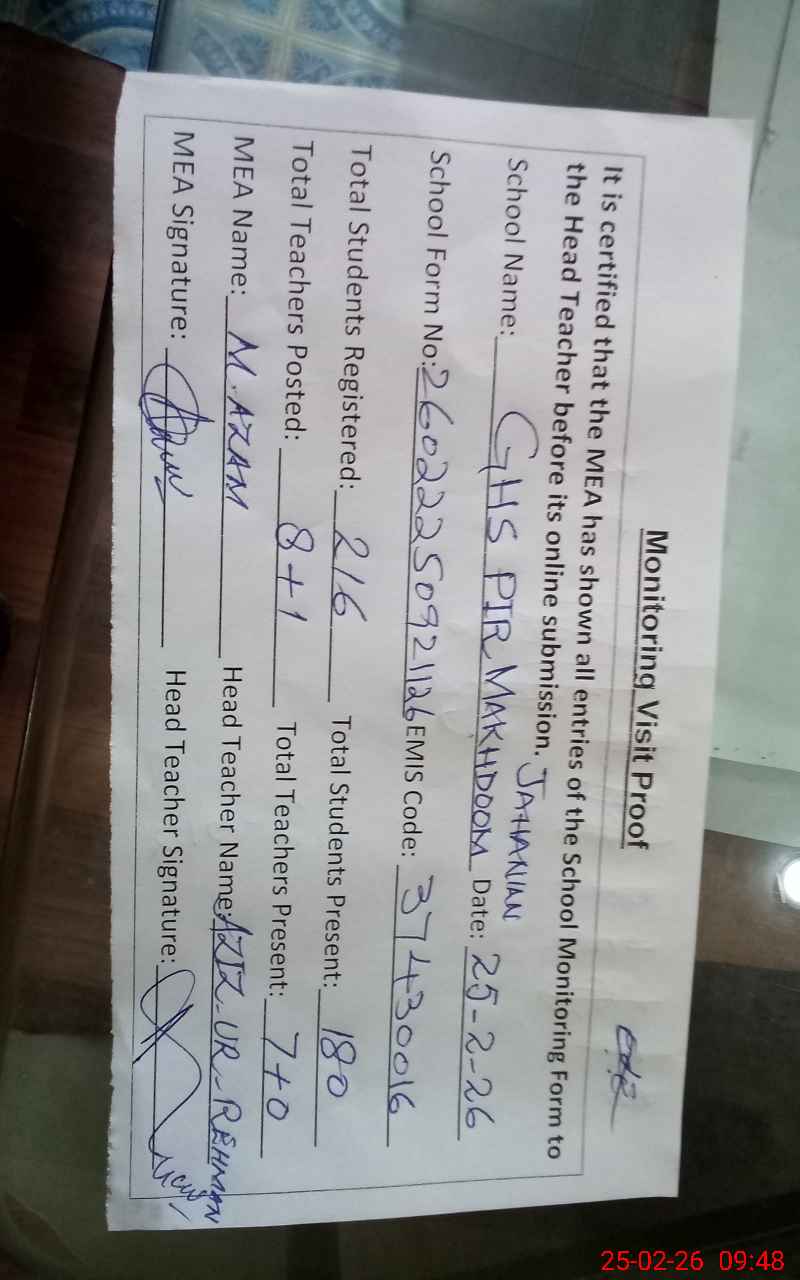 Monitoring Visit Proof
It is certified that the MEA has shown all entries of the School Monitoring Form to
the Head Teacher before its online submission.
School Name: GHS PIR MAKHDOOM JAHANIAN Date: 25-2-26
School Form No: 26022250921126 EMIS Code: 37430016
Total Students Registered: 216 Total Students Present: 180
Total Teachers Posted: 8+1 Total Teachers Present: 7+0
MEA Name: M. AZAM Head Teacher Name: AZIZ-UR-REHMAN
MEA Signature: Head Teacher Signature:
25-02-26 09:48